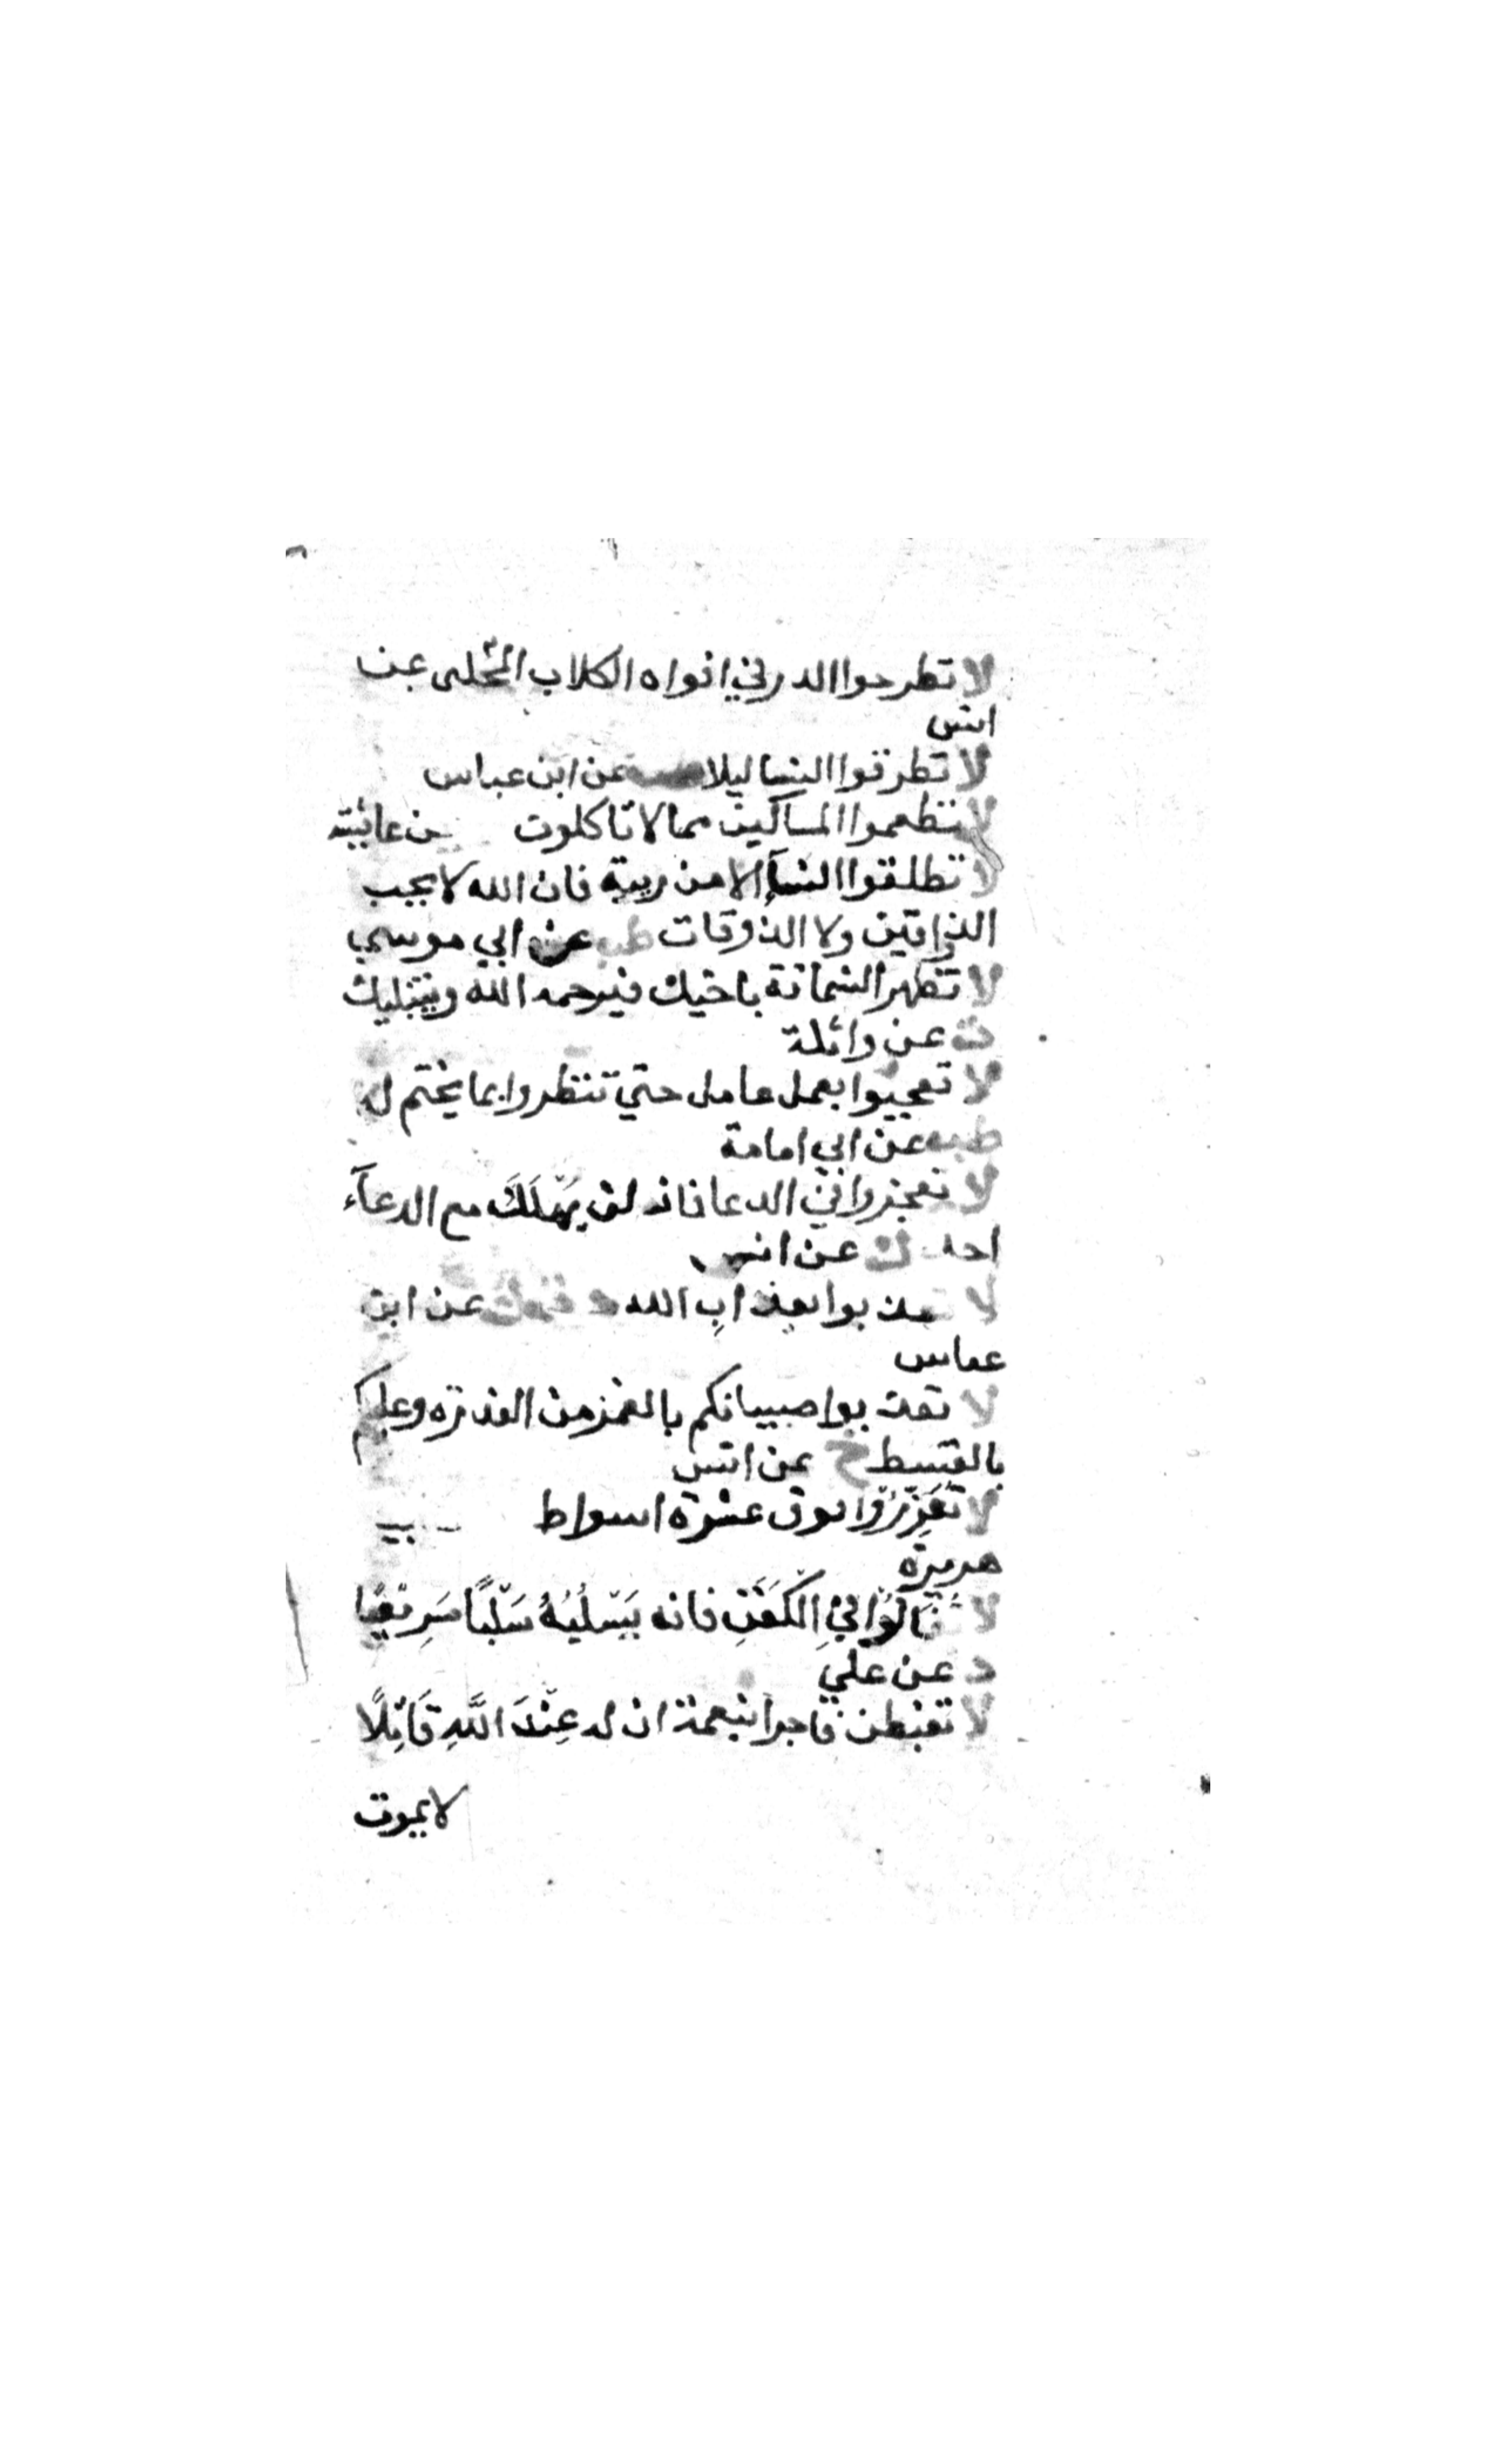 لا تطرحوا الدر في افواه الكلاب المخلص عن
انس
لا تطرقوا النسا ليلا عن ابن عباس
لا تطعموا المساكين مما لا تاكلون عن عائشة
لا تطلقوا النسآ الا من ريبة فان الله لا يحب
الذواقين ولا الذوقات طب عن ابي موسي
لا تظهر الشماتة باخيك فيرحمه الله ويبتليك
ت عن واثلة
لا تعجبوا بعمل عامل حتي تنظروا بما يختم له
طب عن ابي امامة
لا تعجزوا في الدعا فانه لن يَهْلَكَ مع الدعآء
احد ك عن انس
لا تعذبوا بعذابِ الله د ت ك عن ابن
عباس
لا تعذبوا صبيانكم بالغمز من العذرة وعليكم
بالقسط خ عن انس
لا تُعَزِّرُوا فوق عشرة اسواط
هريرة
لا تُغَالُوْا فيِ الكَفَنِ فانه يَسْلُبُهُ سَلْبًا سَرِيْعًا
د عن علي
لا تغبطن فاجرا بنعمة ان له عِنْدَ اللَّهِ قَاتِلًا
لا يموت